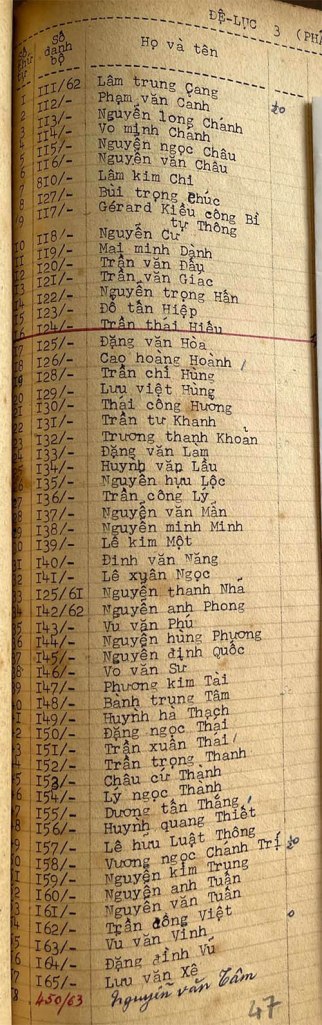 ĐỆ-LỤC 3 (PHÁ
Số thứ tự Số danh bộ Họ và tên
1 III/62 Lâm trung Cang
2 II2/- Phạm văn Cảnh
3 II3/- Nguyễn long Chánh
4 II4/- Vo minh Chánh
5 II5/- Nguyễn ngọc Châu
6 II6/- Nguyễn văn Châu
7 8I0/- Lâm kim Chi
8 I27/- Bùi trọng Chúc
9 II7/- Gérard Kiều công Bỉ
tự Thông
10 II8/- Nguyễn Cư
11 II9/- Mai minh Dành
12 I20/- Trần văn Đẩu
13 I2I/- Trần văn Giac
14 I22/- Nguyễn trọng Hân
15 I23/- Đỗ tấn Hiệp
16 I24/- Trần thái Hiếu
17 I25/- Đặng văn Hòa
18 I26/- Cao hoàng Hoành /
19 I28/- Trần chí Hùng
20 I29/- Lưu việt Hùng
21 I30/- Thái công Hương
22 I3I/- Trần tư Khanh
23 I32/- Trương thanh Khoản
24 I33/- Đặng văn Lam
25 I34/- Huỳnh văn Lầu
26 I35/- Nguyễn hưu Lộc
27 I36/- Trần công Lý
28 I37/- Nguyễn văn Mẫn
29 I38/- Nguyễn minh Minh
30 I39/- Lê kim Một
31 I40/- Đinh văn Năng
32 I4I/- Lê xuân Ngọc
33 I25/6I Nguyễn thanh Nhã
34 I42/62 Nguyễn anh Phong
35 I43/- Vu văn Phú
36 I44/- Nguyễn hùng Phương
37 I45/- Nguyễn đình Quốc
38 I46/- Vo văn Sư
39 I47/- Phương kim Tài
40 I48/- Banh trung Tâm
41 I49/- Huỳnh hà Thạch
42 I50/- Đặng ngọc Thái
43 I5I/- Trần xuân Thái /
44 I52/- Trần trọng Thanh
45 I53/- Châu cử Thành
46 I54/- Lý ngọc Thành
47 I55/- Dương tấn Thắng /
48 I56/- Huỳnh quang Thiết
49 I57/- Lê hưu Luật Thông
50 I58/- Vương ngọc Chanh Trí
51 I59/- Nguyễn kim Trung
52 I60/- Nguyễn anh Tuấn
53 I6I/- Nguyễn văn Tuấn
54 I62/- Trần đông Việt
55 I63/- Vu văn Vinh
56 I64/- Đặng đình Vu
57 I65/- Lưu văn Xê
58 450/63 Nguyễn văn Tâm
47